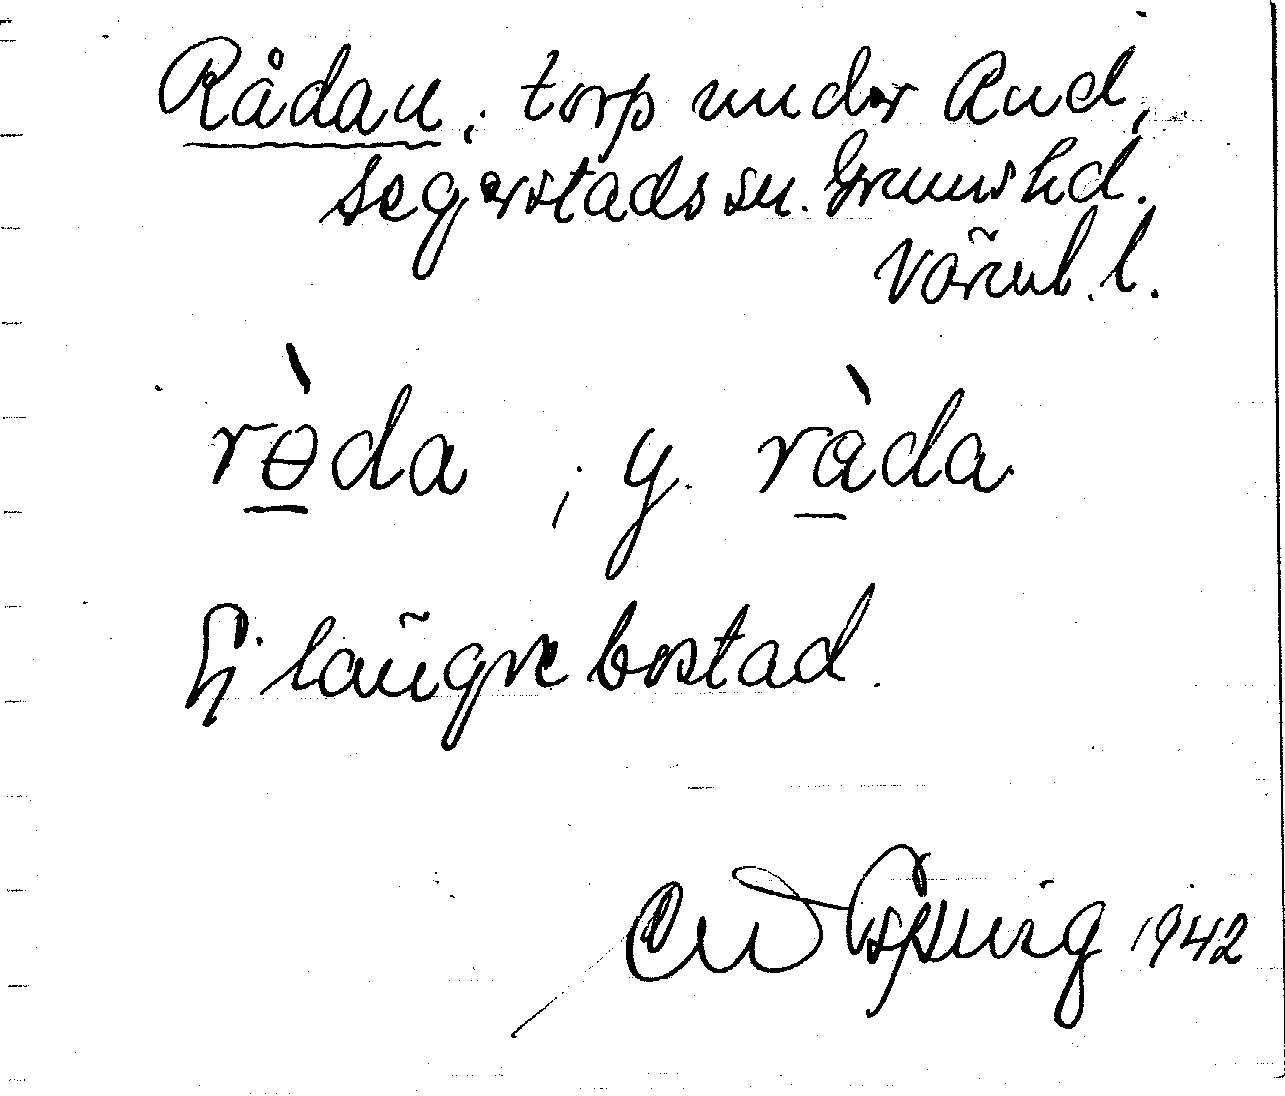 Rådan, torp under Rud,
Segerstads sn. Grums hd.
Värml. l.
rɵ̀da ; y. ràda
Ej längre bostad.
1942